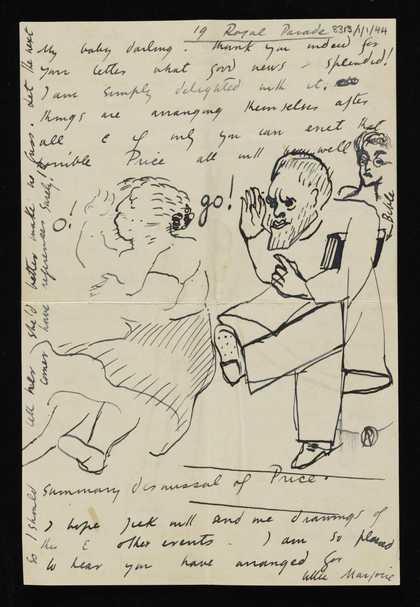 19 Royal Parade
8313/1/1/44
My baby darling. Thank you indeed for
your letter what good news & splendid!
I am simply delighted with it.
things are arranging themselves after
all & if only you can evict that
horrible Price all will be very well
O!
go!
Belle
Summary Dismissal of Price.
I hope Jack will send me drawings of
this & other events. I am so pleased
to hear you have arranged for
little Marjorie
So I should tell her she'd better make no fuss. Let the next
comer have references surely!